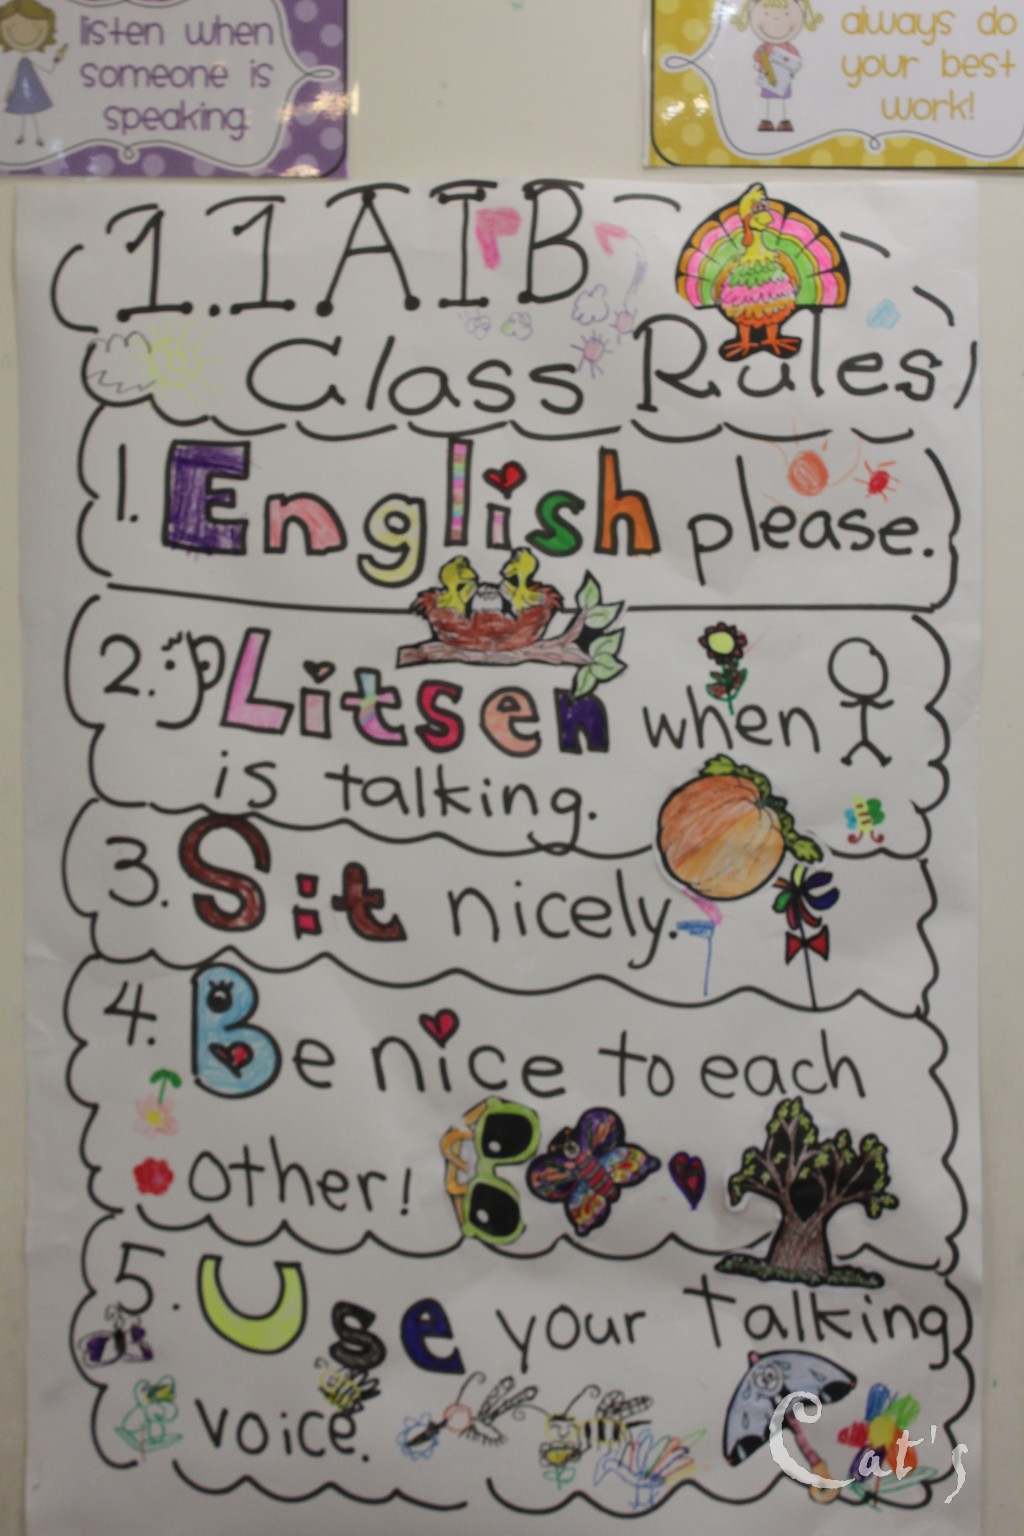 listen when
someone is
speaking.
always do
your best
work!
1.1AIB
Class Rules
1. English please.
2. Litsen when
is talking.
3. Sit nicely.
4. Be nice to each
other!
5. Use your talking
voice.
Cat's